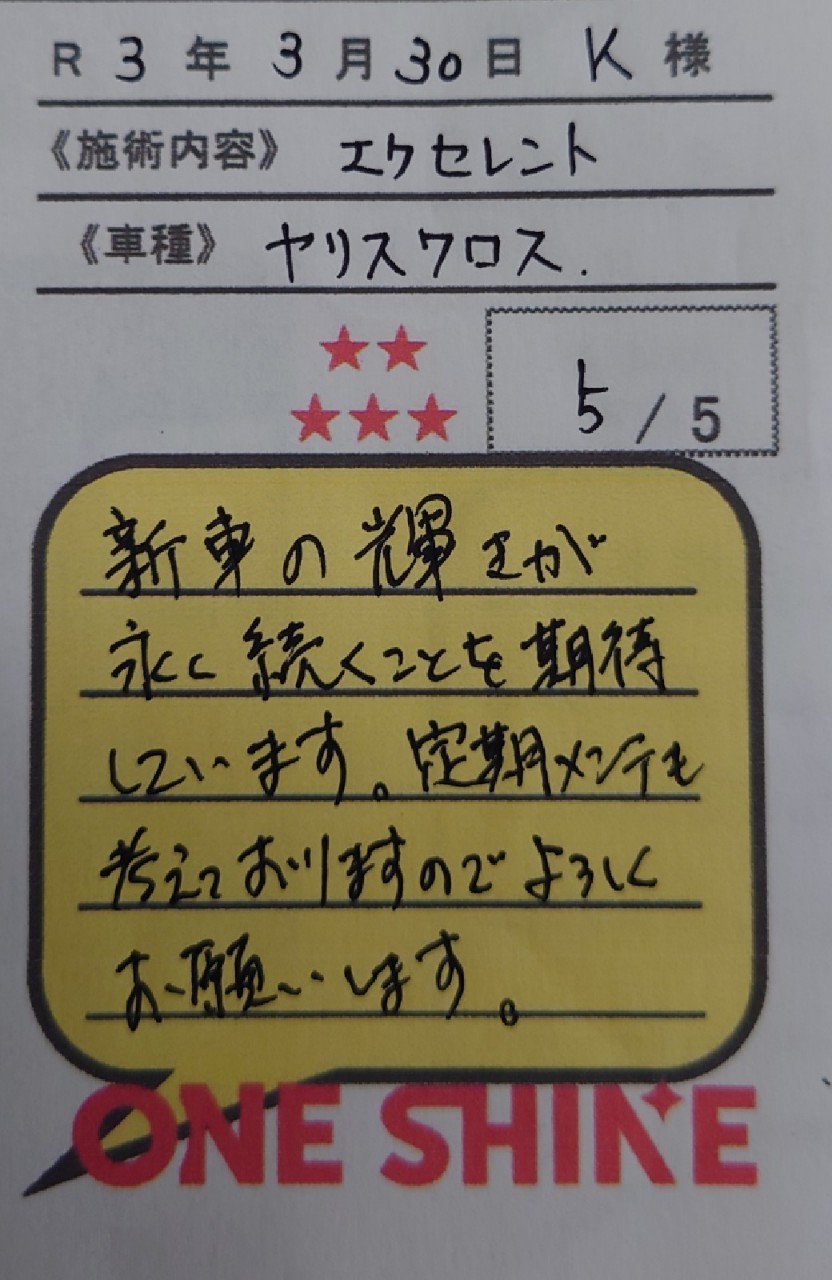 R 3 年 3 月 30 日 K 様
《施術内容》 エクセレント
《車種》 ヤリスクロス.
★★
★★★
5 / 5
新車の輝きが
永く続くことを期待
しています。定期メンテも
考えておりますのでよろしく
お願いします。
ONE SHINE